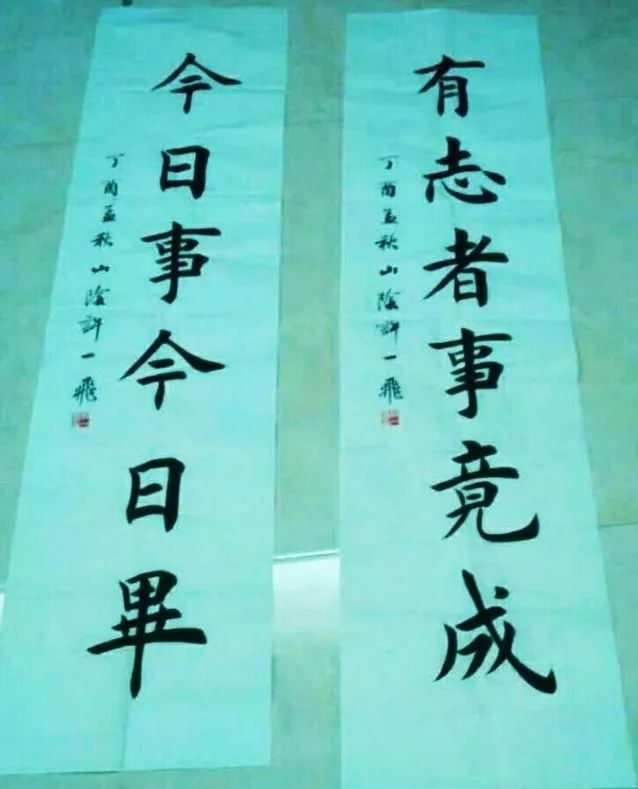 有志者事竟成
丁酉孟秋山陰許一飛
今日事今日畢
丁酉孟秋山陰許一飛